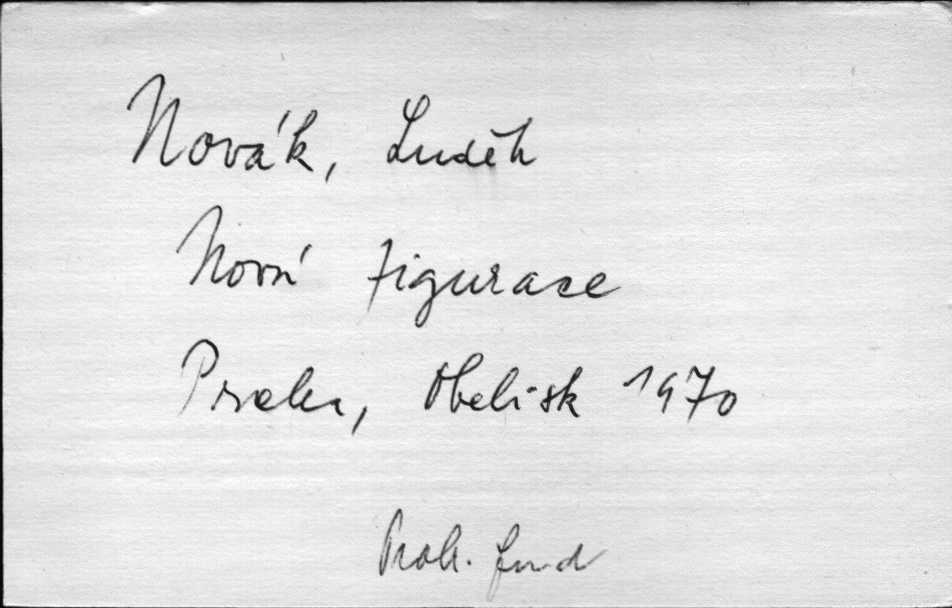 Novák, Luděk
Nová figurace
Praha, Obelisk 1970
fond